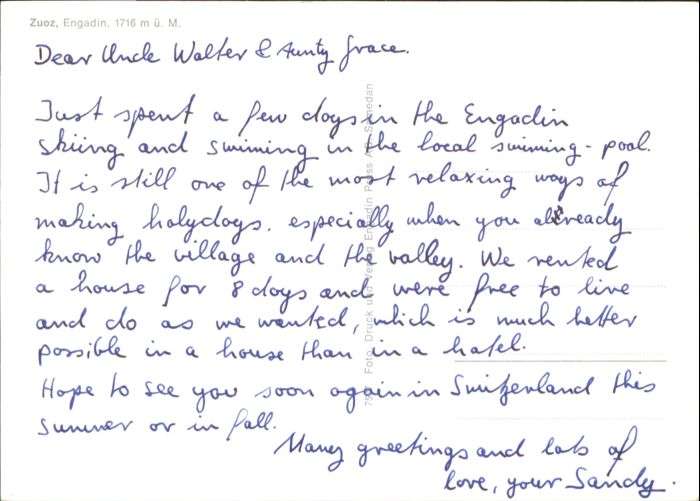 Zuoz, Engadin, 1716 m ü. M.
Dear Uncle Walter & Aunty Grace.
Just spent a few days in the Engadin
skiing and swiming in the local swiming-pool.
It is still one of the most relaxing ways of
making holydays. especially when you already
know the village and the valley. We rented
a house for 8 days and were free to live
and do as we wanted, which is much better
possible in a house than in a hotel.
Hope to see you soon again in Switzerland this
summer or in fall.
Many greetings and lots of
love, your Sandy.
Foto, Druck und Verlag Engadin Press AG, Samedan